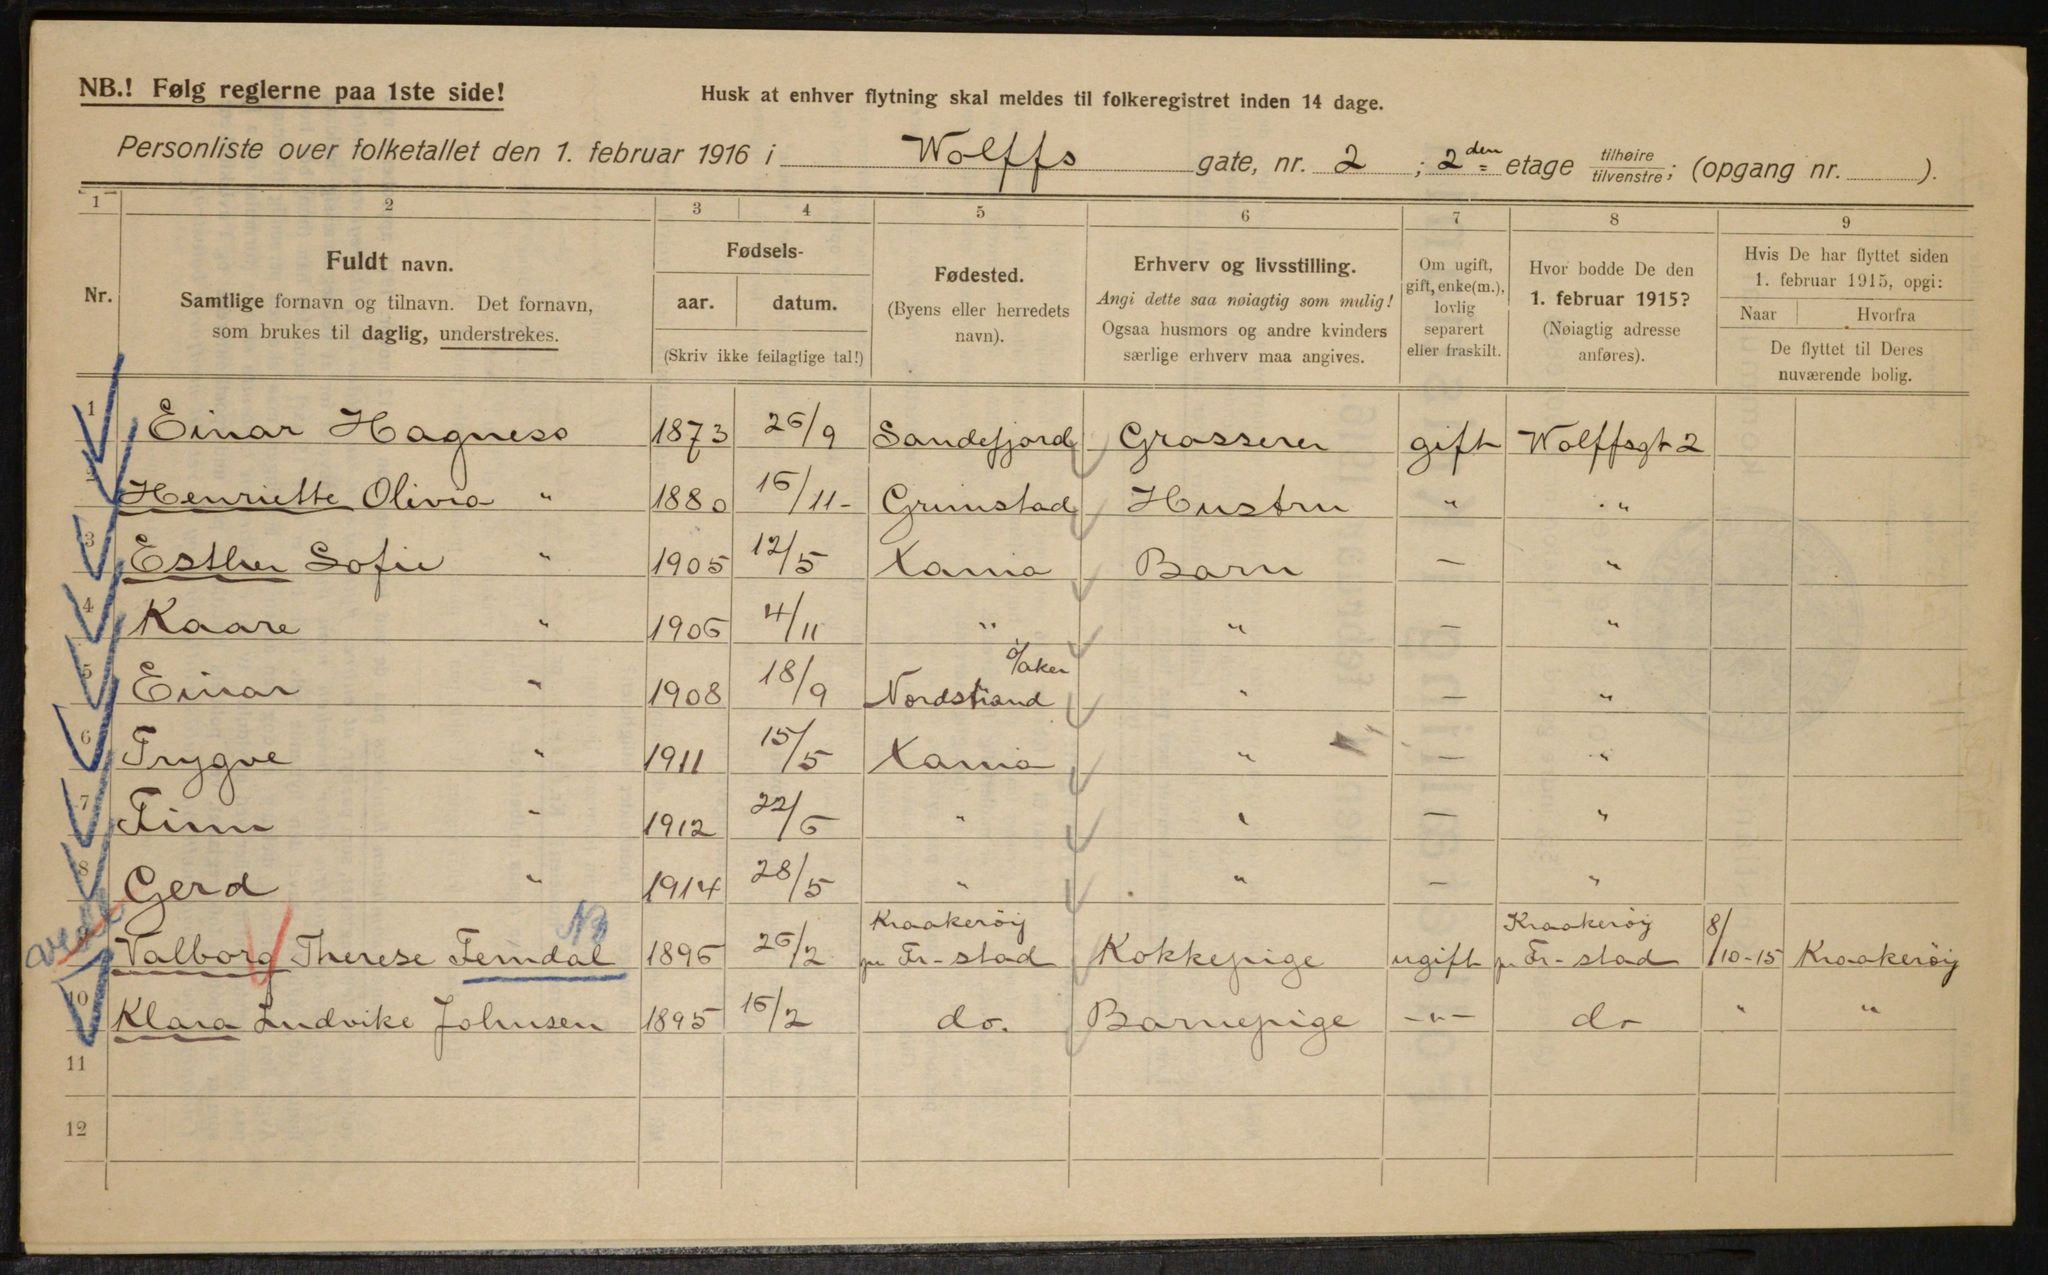 NB.! Følg reglerne paa 1ste side!
Husk at enhver flytning skal meldes til folkeregistret inden 14 dage.
Personliste over folketallet den 1. februar 1916 i Wolffs gate, nr. 2 ; 2den etage tilhøire tilvenstre; (opgang nr. ).
1 2 3 4 5 6 7 8 9
Nr.
Fuldt navn.
Samtlige fornavn og tilnavn. Det fornavn,
som brukes til daglig, understrekes.
Fødsels-
aar. datum.
(Skriv ikke feilagtige tal!)
Fødested.
(Byens eller herredets
navn).
Erhverv og livsstilling.
Angi dette saa nøiagtig som mulig!
Ogsaa husmors og andre kvinders
særlige erhverv maa angives.
Om ugift,
gift, enke(m.),
lovlig
separert
eller fraskilt.
Hvor bodde De den
1. februar 1915?
(Nøiagtig adresse
anføres).
Hvis De har flyttet siden
1. februar 1915, opgi:
Naar Hvorfra
De flyttet til Deres
nuværende bolig.
1 Einar Hagness 1873 26/9 Sandefjord Grosserer gift Wolffsgt 2
2 Henriette Olivia " 1880 16/11- Grimstad Hustru " "
3 Esther Sofie " 1905 12/5 Xania Barn — "
4 Kaare " 1906 4/11 " " — "
5 Einar " 1908 18/9 Nordstrand ø/aker " — "
6 Trygve " 1911 15/5 Xania " — "
7 Finn " 1912 22/6 " " — "
8 Gerd " 1914 28/5 " " — "
Valborg Therese Femdal NB 1896 26/2 Kraakerøy pr Fr-stad Kokkepige ugift Kraakerøy pr Fr-stad 8/10-15 Kraakerøy
10 Klara Ludvike Johnsen 1895 16/2 do. Barnepige -"- do " "
11
12